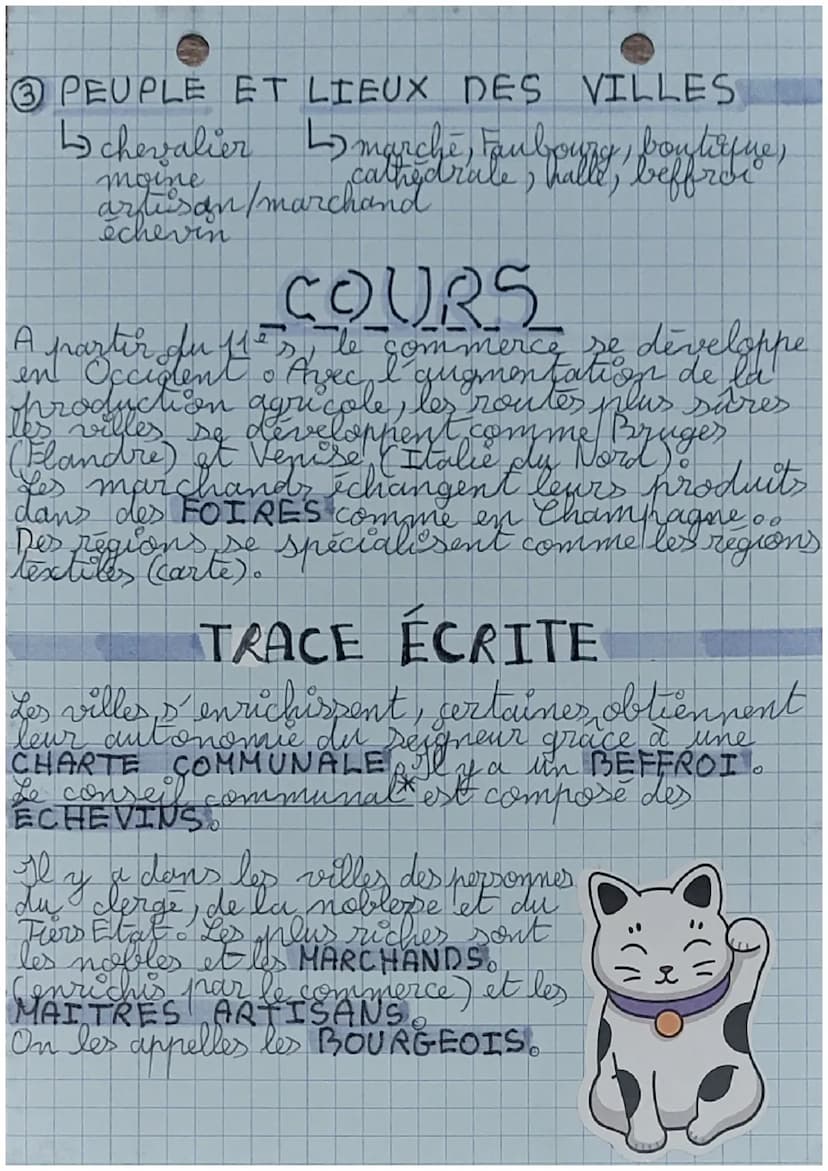 ③ PEUPLE ET LIEUX DES VILLES
↳ chevalier ↳ marché, Faubourg, boutique,
moine cathédrale, halle, beffroi
artisan/marchand
échevin
COURS
A partir du 11è s, le commerce se développe
en Occident. Avec l'augmentation de la
production agricole, les routes plus sûres
les villes se développent comme Bruges
(Flandre) et Venise (Italie du Nord).
Les marchands échangent leurs produits
dans des FOIRES comme en Champagne...
Des régions se spécialisent comme les régions
textiles (carte).
TRACE ÉCRITE
Les villes s'enrichissent, certaines obtiennent
leur autonomie du seigneur grâce à une
CHARTE COMMUNALE. Il y a un BEFFROI.
Le conseil communal* est composé des
ÉCHEVINS.
Il y a dans les villes des personnes
du clergé, de la noblesse et du
Tiers État. Les plus riches sont
les nobles et les MARCHANDS.
(enrichis par le commerce) et les
MAITRES ARTISANS.
On les appelles les BOURGEOIS.